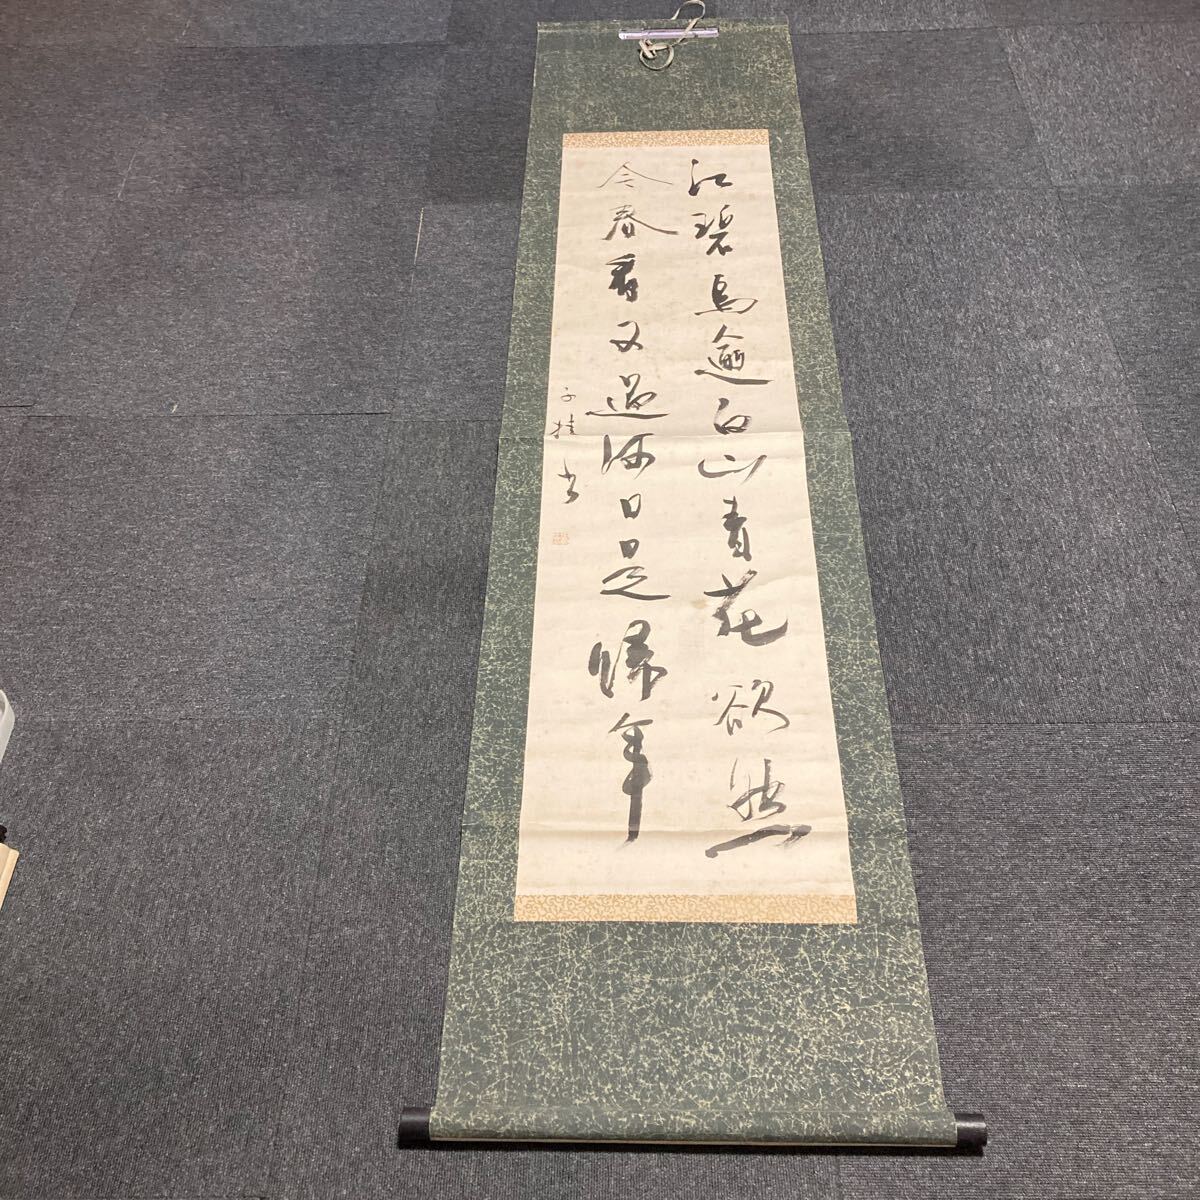 江碧鳥逾白山青花欲然
今春看又過何日是帰年
子桂書